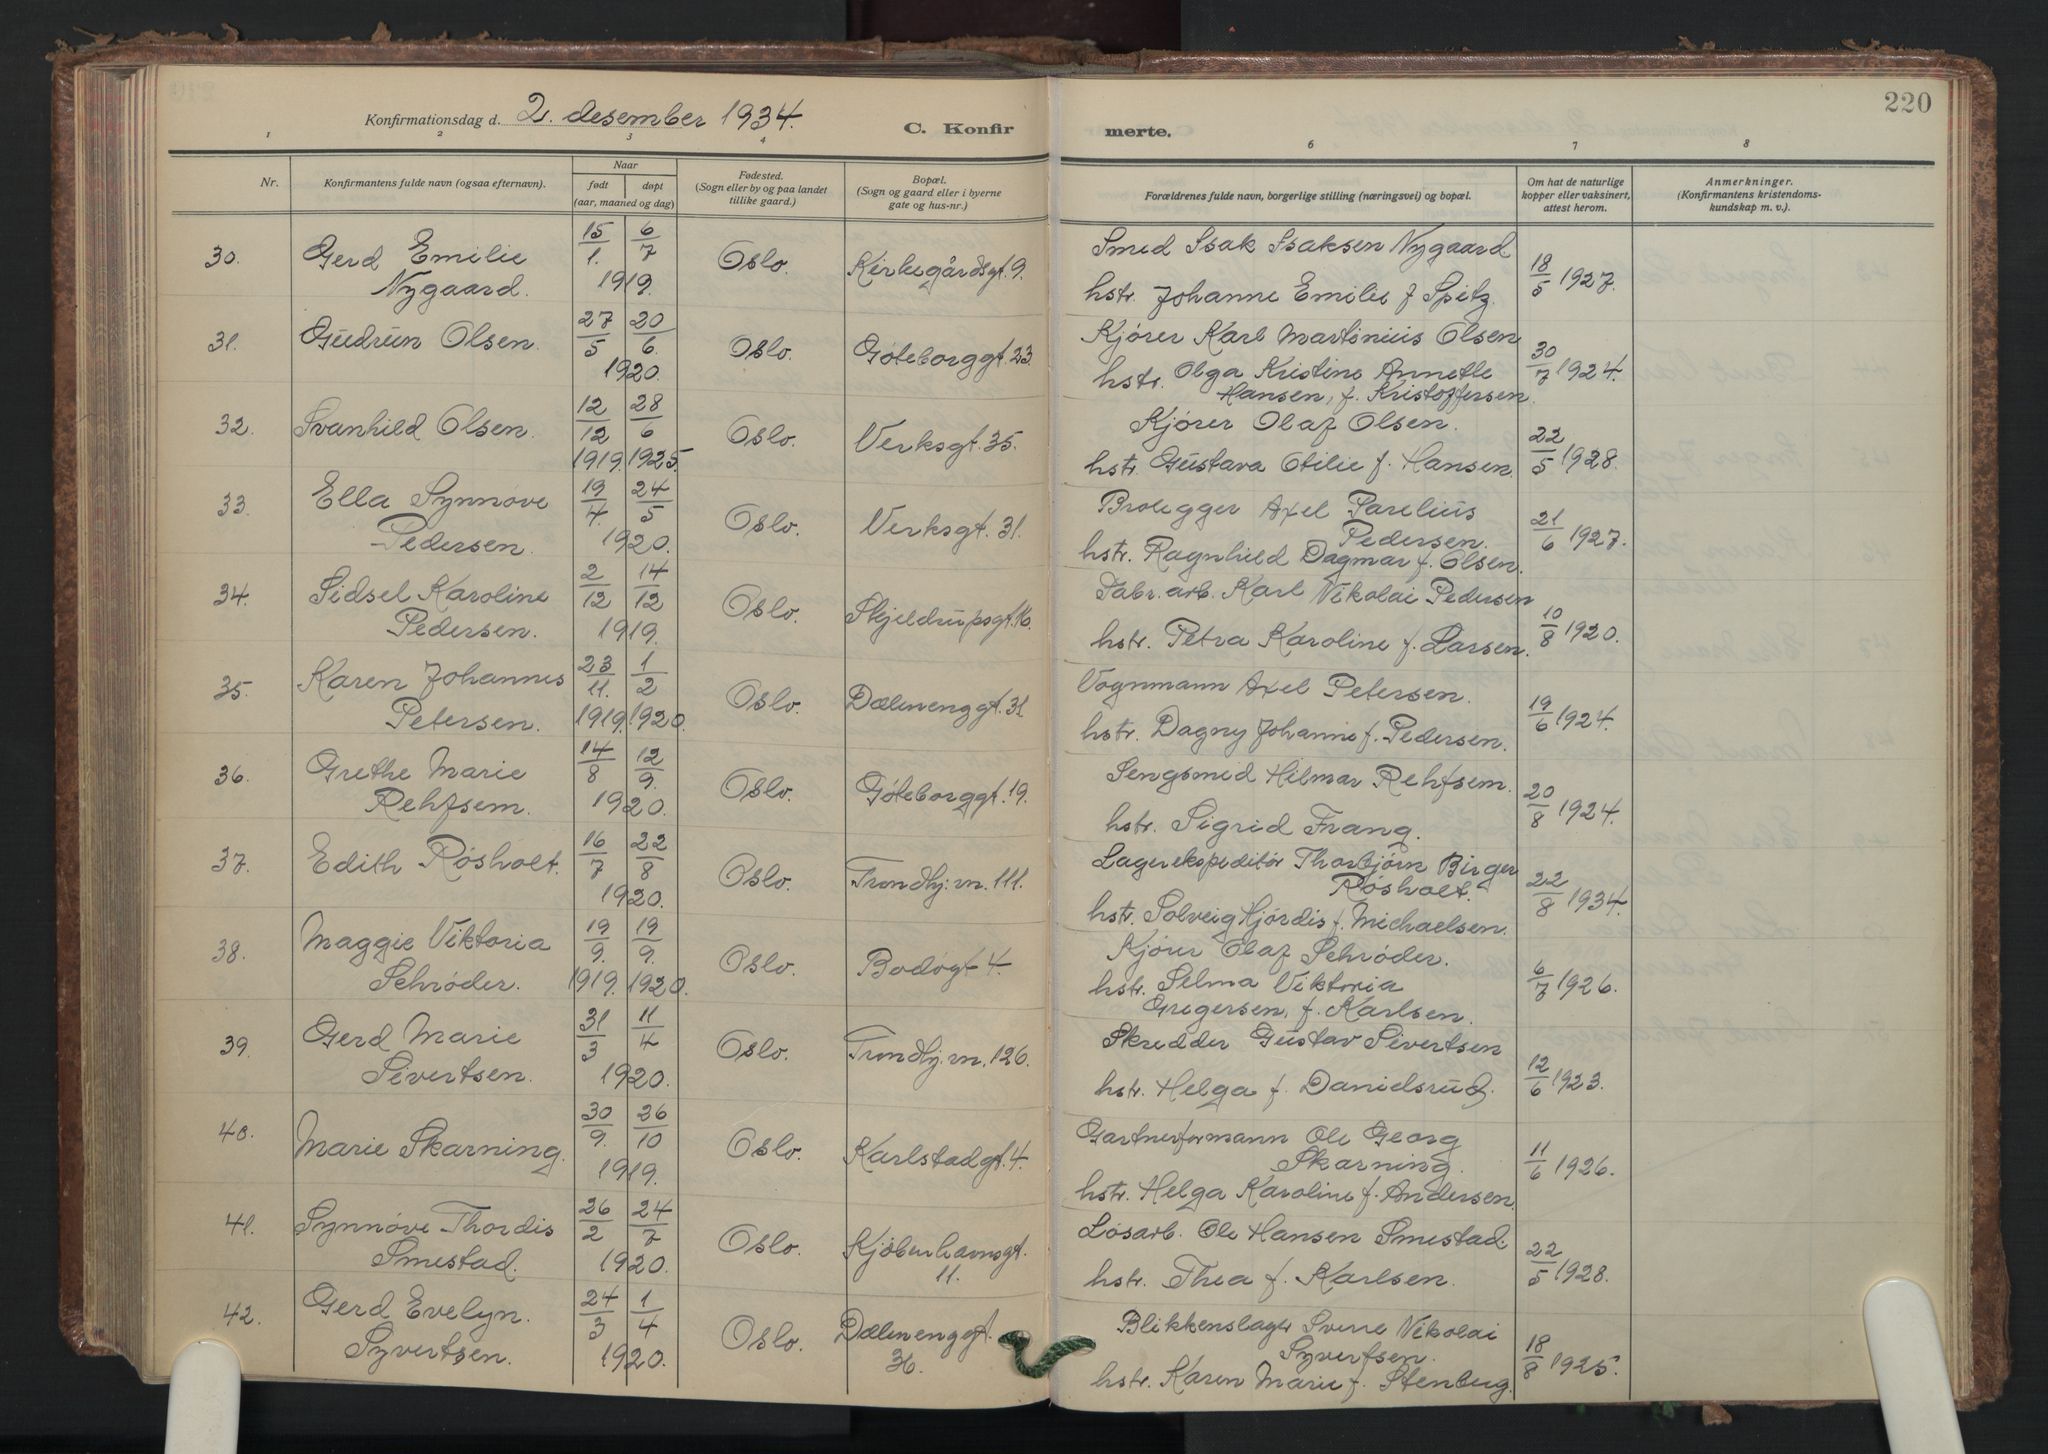 220
Konfirmationsdag d. 2. desember 1934.
C. Konfirmerte.
1 2 3 4 6 7 8
Nr.
Konfirmantens fulde navn (ogsaa efternavn).
Naar
født døpt
(aar, maaned og dag)
Fødested.
(Sogn eller by og paa landet
tillike gaard.)
Bopæl.
(Sogn og gaard eller i byerne
gate og hus-nr.)
Forældrenes fulde navn, borgerlige stilling (næringsvei) og bopæl.
Om hat de naturlige
kopper eller vaksinert,
attest herom.
Anmerkninger.
(Konfirmantens kristendoms-
kundskap m. v.).
30. Gerd Emilie 15/1. 6/7 Oslo. Kirkegårdsgt. 9. Smed Isak Isaksen Nygaard 18/5 1927.
Nygaard. 1919. hstr. Johanne Emilie f Spitz.
31. Gudrun Olsen. 27/5 20/6. Oslo. Göteborggt. 23. Kjører Karl Martinius Olsen 30/7 1924.
1920. hstr. Olga Kristine Annette
Hansen, f. Kristoffersen.
32. Svanhild Olsen. 12/12 28/6 Oslo. Verksgt. 35. Kjører Olaf Olsen. 22/5 1928.
1919. 1925. hstr. Gustava Otilie f. Hansen.
33. Ella Synnøve 19/4. 24/5 Oslo. Verksgt. 31. Brolegger Axel Parelius 21/6 1927.
Pedersen. 1920. Pedersen.
hstr. Ragnhild Dagmar f. Olsen.
34. Sidsel Karoline 2/12 14/12 Oslo. Skjeldrupsgt. 16. Fabr. arb. Karl Nikolai Pedersen 10/8 1920.
Pedersen. 1919. hstr. Petra Karoline f. Larsen.
35. Karen Johannes 23/11. 1/2 Oslo. Dælenenggt. 31. Vognmann Axel Petersen. 19/6 1924.
Petersen. 1919. 1920. hstr. Dagny Johanne f. Pedersen.
36. Grethe Marie 14/8 12/9. Oslo. Göteborggt. 19. Sengsmed Hilmar Rehfsem. 20/8 1924.
Rehfsem. 1920. hstr. Sigrid Frang.
37. Edith Røsholt. 16/7 22/8 Oslo. Trondhj. vn. 111. Lagerekspeditør Thorbjørn Birger 22/8 1934.
1920. Røsholt.
hstr. Solveig Hjørdis f. Michaelsen.
38. Maggie Viktoria 19/9. 19/9. Oslo. Bodøgt 4. Kjører Olaf Schrøder. 6/7 1926.
Schrøder. 1919. 1920. hstr. Selma Viktoria
Gregersen, f. Karlsen.
39. Gerd Marie 31/3 11/4 Oslo. Trondhj. vn. 126. Skredder Gustav Sivertsen 12/6 1923.
Sivertsen. 1920. hstr. Helga f. Danielsrud.
40. Marie Skarning. 30/9. 26/10 Oslo. Karlstadgt. 4. Gartnerformann Ole Georg 11/6 1926.
1919. Skarning.
hstr. Helga Karoline f. Andersen.
41. Synnøve Thordis 26/2 24/7 Oslo. Kjøbenhavnsgt. Løsarb. Ole Hansen Smestad. 22/5 1928.
Smestad. 1920. 11. hstr. Thea f. Karlsen.
42. Gerd Evelyn. 24/3 1/4 Oslo. Dælenenggt. Blikkenslager Sverre Nikolai 18/8 1925.
Syvertsen. 1920. 36. Syvertsen.
hstr. Karen Marie f. Stenberg.